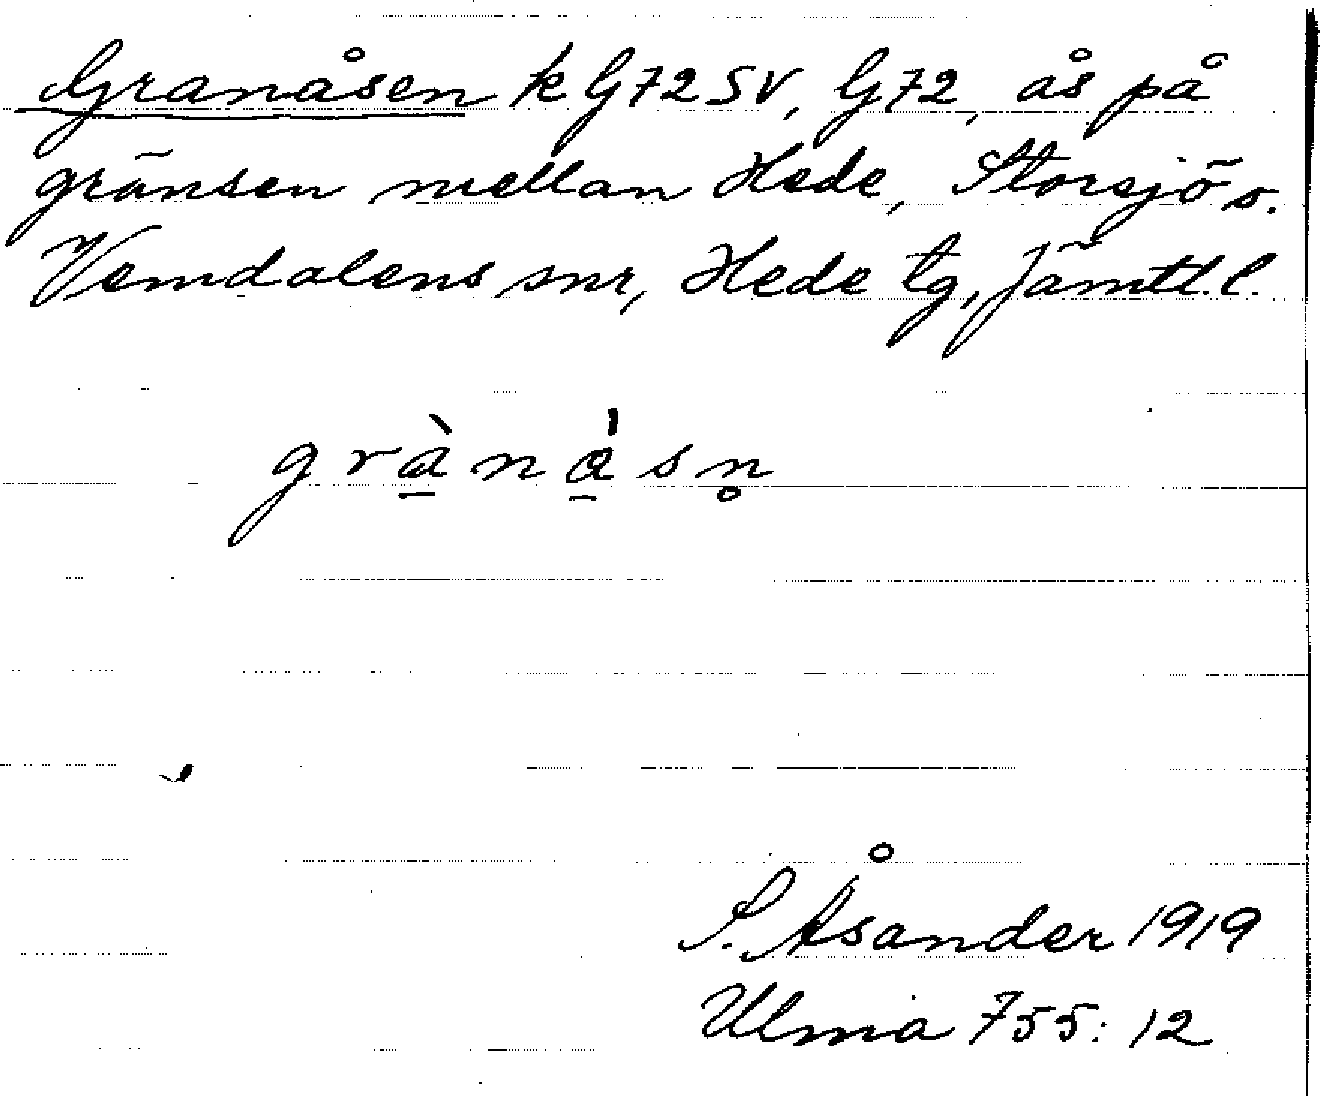 Granåsen k G72SV, G72, ås på
gränsen mellan Hede, Storsjö o.
Vemdalens snr, Hede tg, Jämtl.l.
grànàsn̥
S. Åsander 1919
Ulma 755:12